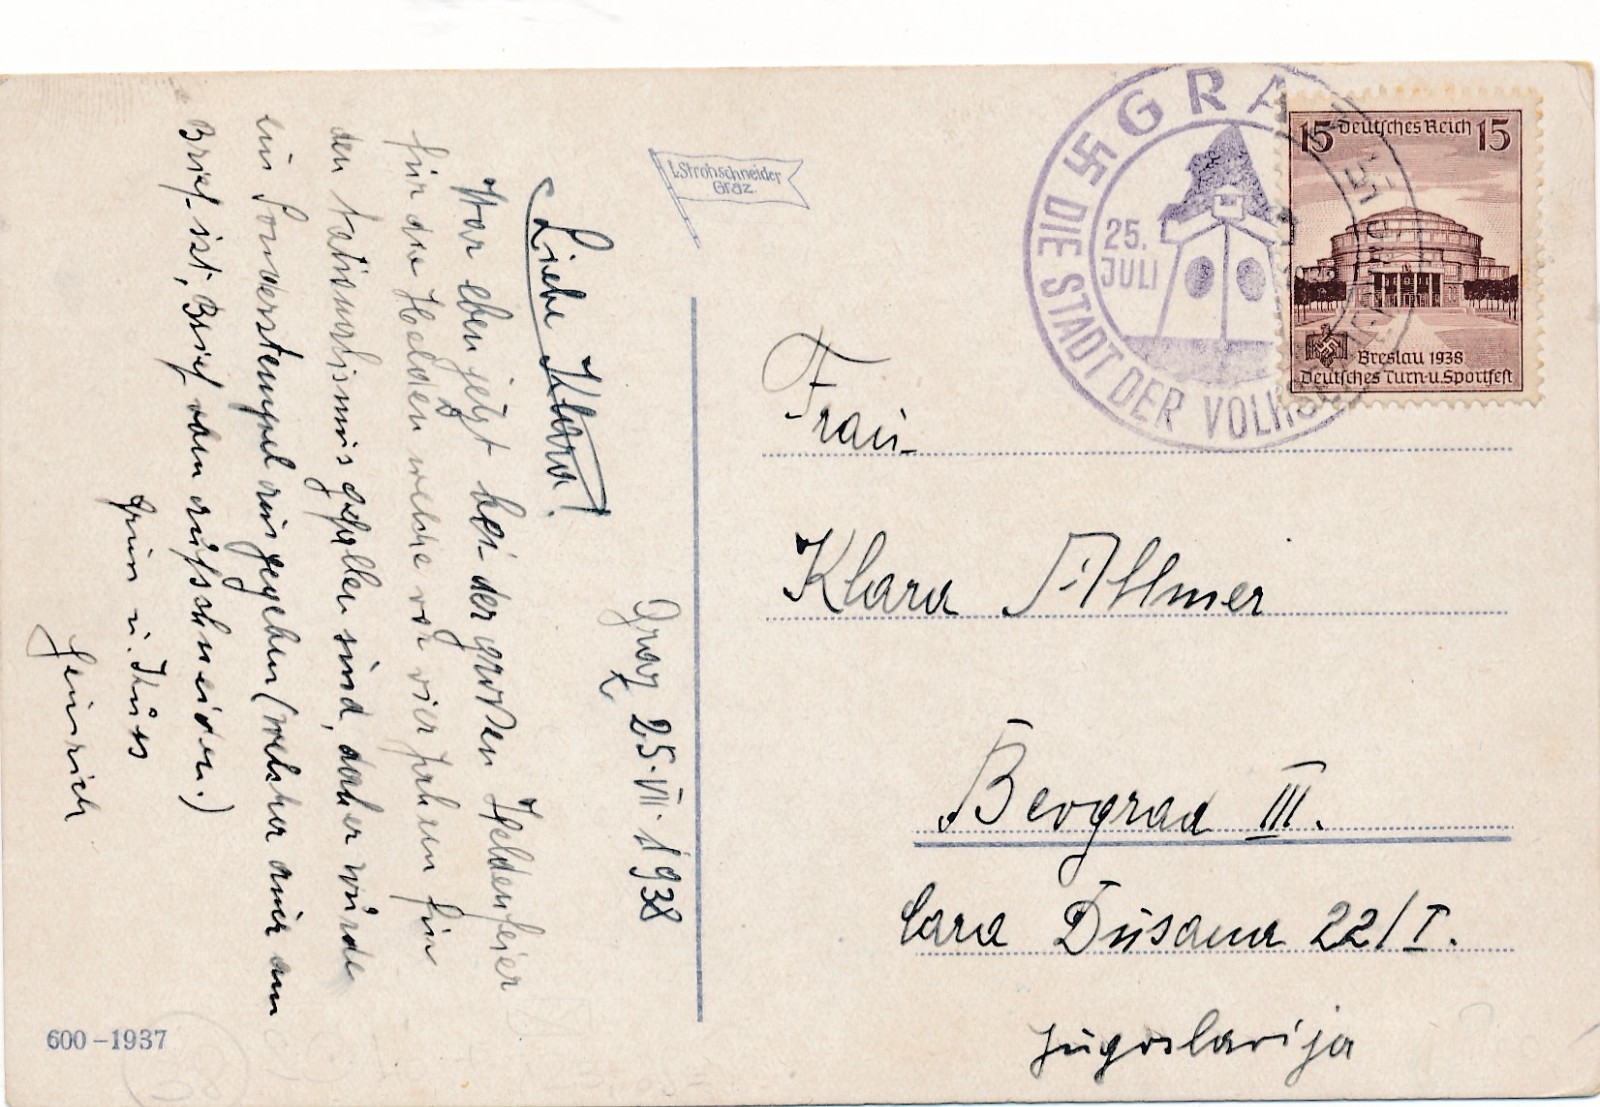 I. Strohschneider
Graz.
Graz 25.VII.1938
Liebe Klara!
War eben jetzt bei der großen Heldenfeier
für die Helden welche vor vier Jahren für
den Nationalismus gefallen sind, daher wurde
ein Sonderstempel ausgegeben (welcher auch am
Brief ist, Brief oben aufschneiden.)
Heinrich
600-1937
GRAZ
DIE STADT DER VOLKSERHEBUNG
25.
JULI
15 Deutsches Reich 15
Breslau 1938
Deutsches Turn-u. Sportfest
Frau
Klara Allmer
Beograd III.
Cara Dušana 22/I.
Jugoslavija